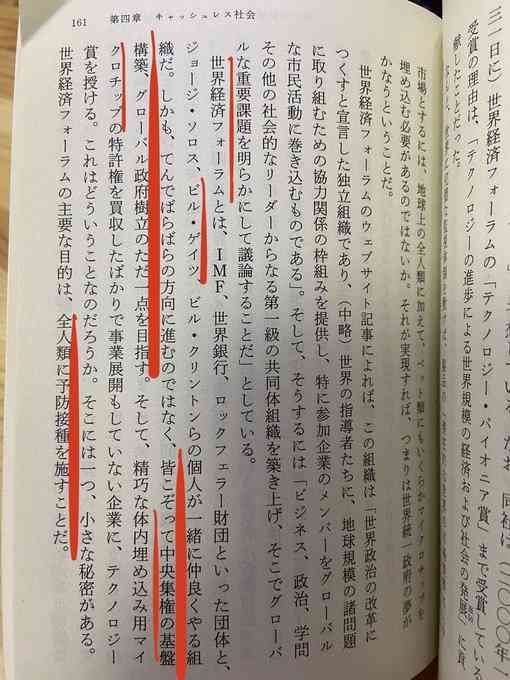 三一日に）世界経済フォーラムの「テクノロジー・パイオニア賞」まで受賞している
受賞の理由は、「テクノロジーの進歩による世界規模の経済および社会の発展」に貢
献したことだった。
市場とするには、地球上の全人類に加えて、ペット類にもいくらかマイクロチップを
埋め込む必要があるのではないか。それが実現すれば、つまりは世界統一政府の夢が
かなうということだ。
世界経済フォーラムのウェブサイト記事によれば、この組織は「世界政治の改革に
つくすと宣言した独立組織であり、（中略）世界の指導者たちに、地球規模の諸問題
に取り組むための協力関係の枠組みを提供し、特に参加企業のメンバーをグローバル
な市民活動に巻き込むものである」。そして、そうするには「ビジネス、政治、学問
その他の社会的なリーダーからなる第一級の共同体組織を築き上げ、そこでグローバ
ルな重要課題を明らかにして議論することだ」としている。
世界経済フォーラムとは、ＩＭＦ、世界銀行、ロックフェラー財団といった団体と、
ジョージ・ソロス、ビル・ゲイツ、ビル・クリントンらの個人が一緒に仲良くやる組
織だ。しかも、てんでばらばらの方向に進むのではなく、皆こぞって中央集権の基盤
構築、グローバル政府樹立のただ一点を目指す。そして、精巧な体内埋め込み用マイ
クロチップの特許権を買収したばかりで事業展開もしていない企業に、テクノロジー
賞を授ける。これはどういうことなのだろうか。そこには一つ、小さな秘密がある。
世界経済フォーラムの主要な目的は、全人類に予防接種を施すことだ。
161 第四章 キャッシュレス社会